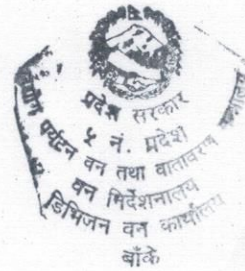 प्रदेश सरकार
उद्योग पर्यटन वन तथा वातावरण
५ नं. प्रदेश
वन निर्देशनालय
डिभिजन वन कार्यालय
बाँके